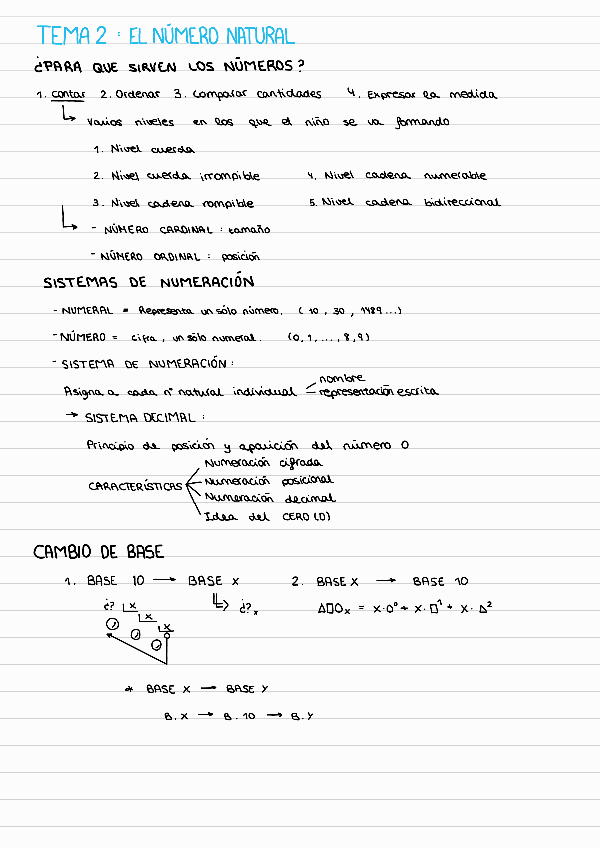 TEMA 2 : EL NÚMERO NATURAL
¿PARA QUE SIRVEN LOS NÚMEROS?
1. contar 2. Ordenar 3. Comparar cantidades 4. Expresar la medida
Varios niveles en los que el niño se va formando
1. Nivel cuerda
2. Nivel cuerda irrompible 4. Nivel cadena numerable
3. Nivel cadena rompible 5. Nivel cadena bidireccional
- NÚMERO CARDINAL : tamaño
- NÚMERO ORDINAL : posición
SISTEMAS DE NUMERACIÓN
- NUMERAL = Representa un sólo número. (10, 30, 1489...)
- NÚMERO = cifra, un sólo numeral. (0, 1, ..., 8, 9)
- SISTEMA DE NUMERACIÓN :
nombre
Asigna a cada nº natural individual representación escrita
→ SISTEMA DECIMAL :
Principio de posición y aparición del número 0
Numeración cifrada
CARACTERÍSTICAS Numeración posicional
Numeración decimal
Idea del CERO (0)
CAMBIO DE BASE
1. BASE 10 → BASE X 2. BASE X → BASE 10
¿? x ¿?x Δ□Ox = x·O⁰ + x·□¹ + x·Δ²
x
x
* BASE X → BASE Y
B. X → B. 10 → B. Y